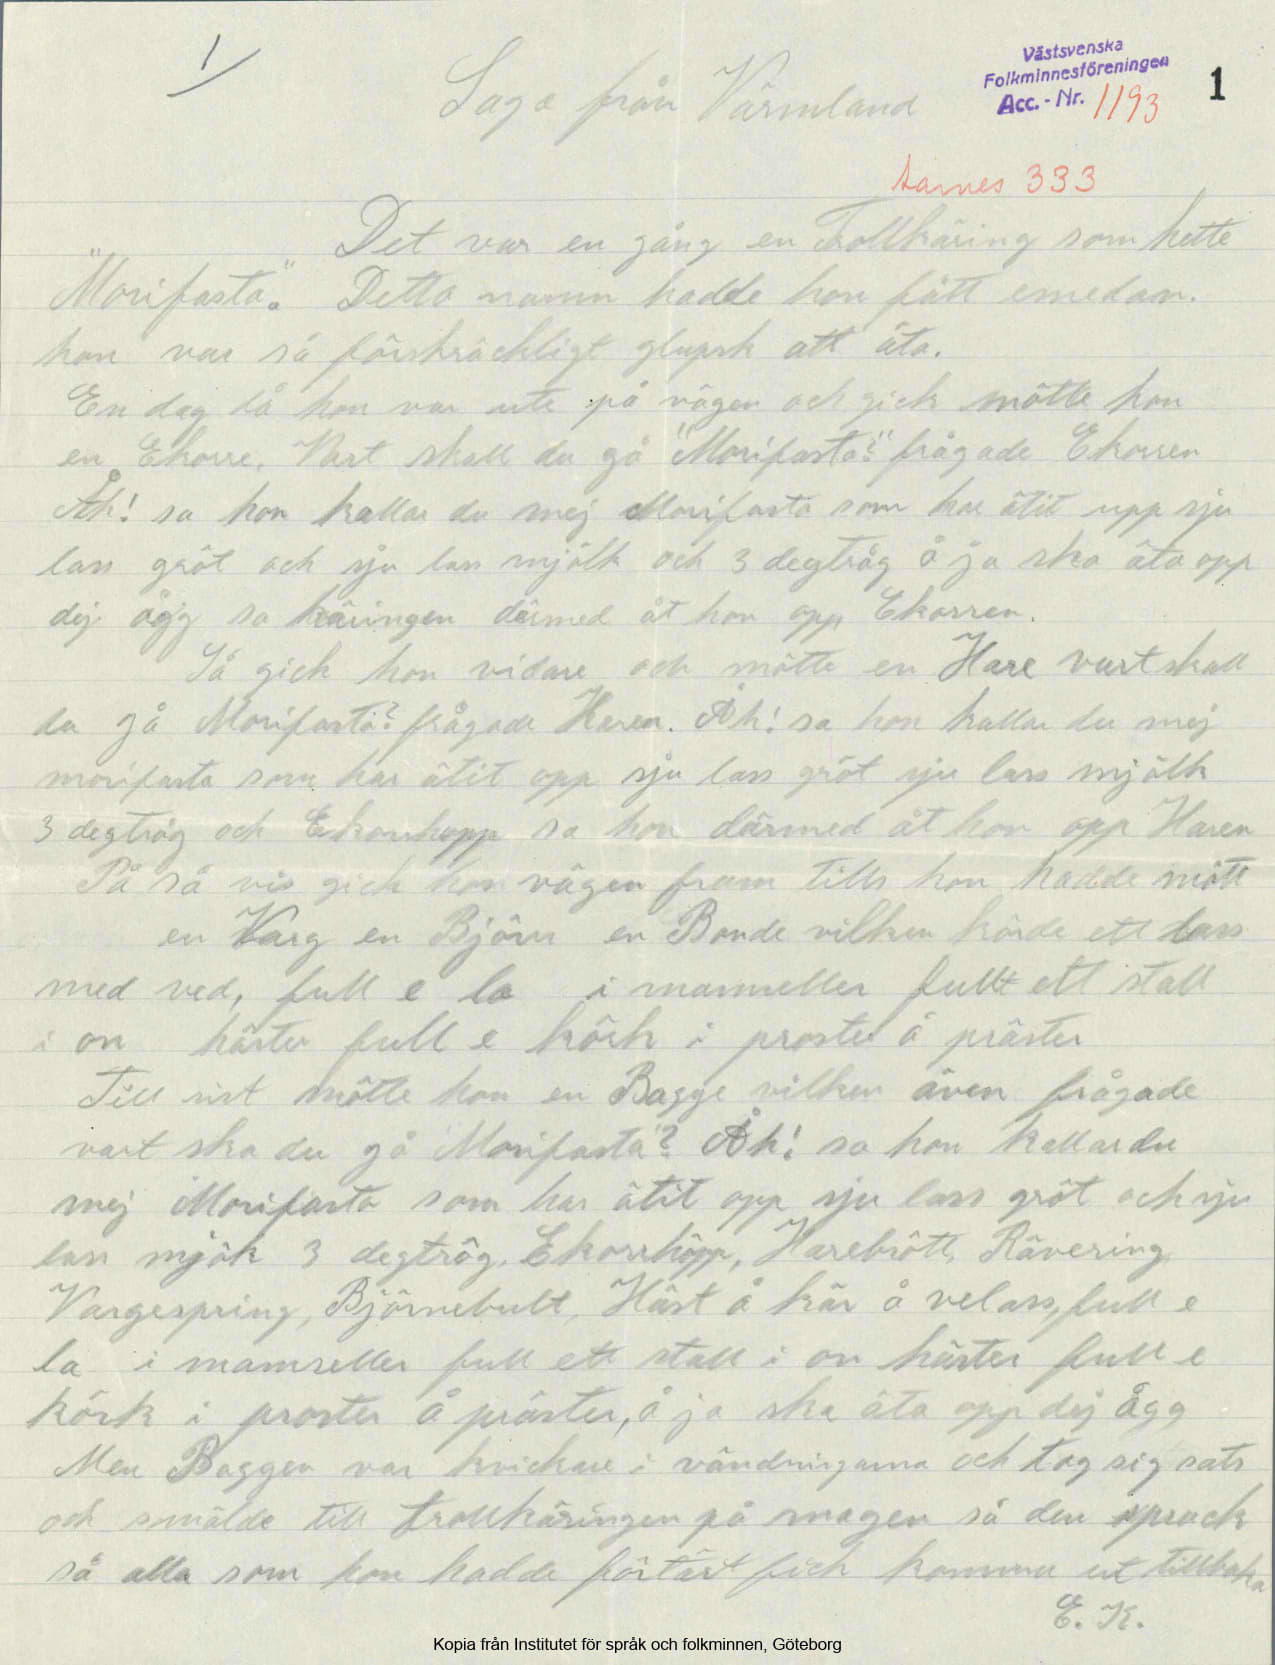 1
Saga från Värmland
Västsvenska
Folkminnesföreningen
Acc.-Nr. 1193
1
Aarnes 333
Det var en gång en Trollkäring som hette
"Morifasta". Detta namn hadde hon fått emedan.
hon var så förskräckligt glupsk att äta.
En dag då hon var ute på vägen och gick mötte hon
en Ekorre. Vart skall du gå "Morifasta?" frågade Ekorren
Åh! sa hon kallar du mej Morifasta som har ätit upp sju
lass gröt och sju lass mjölk och 3 degtråg å ja ska äta opp
dej ågg sa käringen därmed åt hon opp Ekorren.
Så gick hon vidare och mötte en Hare vart skall
du gå Morifasta? frågade Haren. Åh! sa hon kallar du mej
morifasta som har ätit opp sju lass gröt sju lass mjölk
3 degtråg och Ekorrhopp sa hon därmed åt hon opp Haren
På så vis gick hon vägen fram tills hon hadde mött
en Varg en Björn en Bonde vilken körde ett lass
med ved, full e la i mamseller fullt ett stall
i on häster full e körk i proster å präster
Till sist mötte hon en Bagge vilken även frågade
vart ska du gå "Morifasta"? Åh! sa hon kallar du
mej Morifasta som har ätit opp sju lass gröt och sju
lass mjök 3 degtråg, Ekorrhöpp, Harebrött, Rävering
Vargespring, Björnebult, Häst å kär å velass, full e
la i mamseller full ett stall i on häster full e
körk i proster å präster, å ja ska äta opp dej ågg
Men Baggen var kvickare i vändningarna och tog sig sats
och smälde till trollkäringen på magen så den sprack
så alla som hon hadde förtärt fick komma ut tillbaka
E. K.
Kopia från Institutet för språk och folkminnen, Göteborg